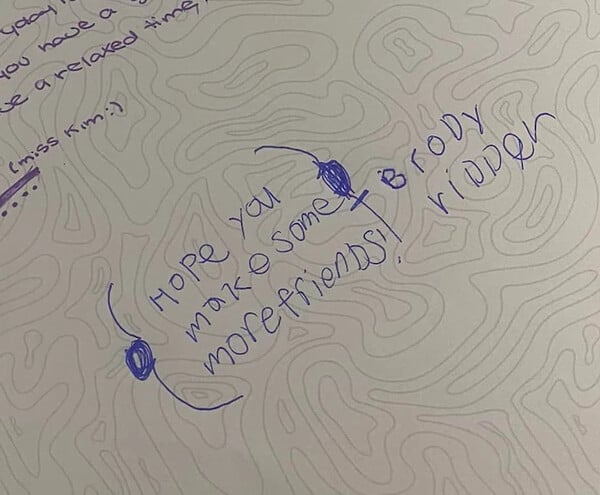 you have a
a relaxed time,
(miss Kim:)
Hope you
make some
more friends!
- Brody
ridder